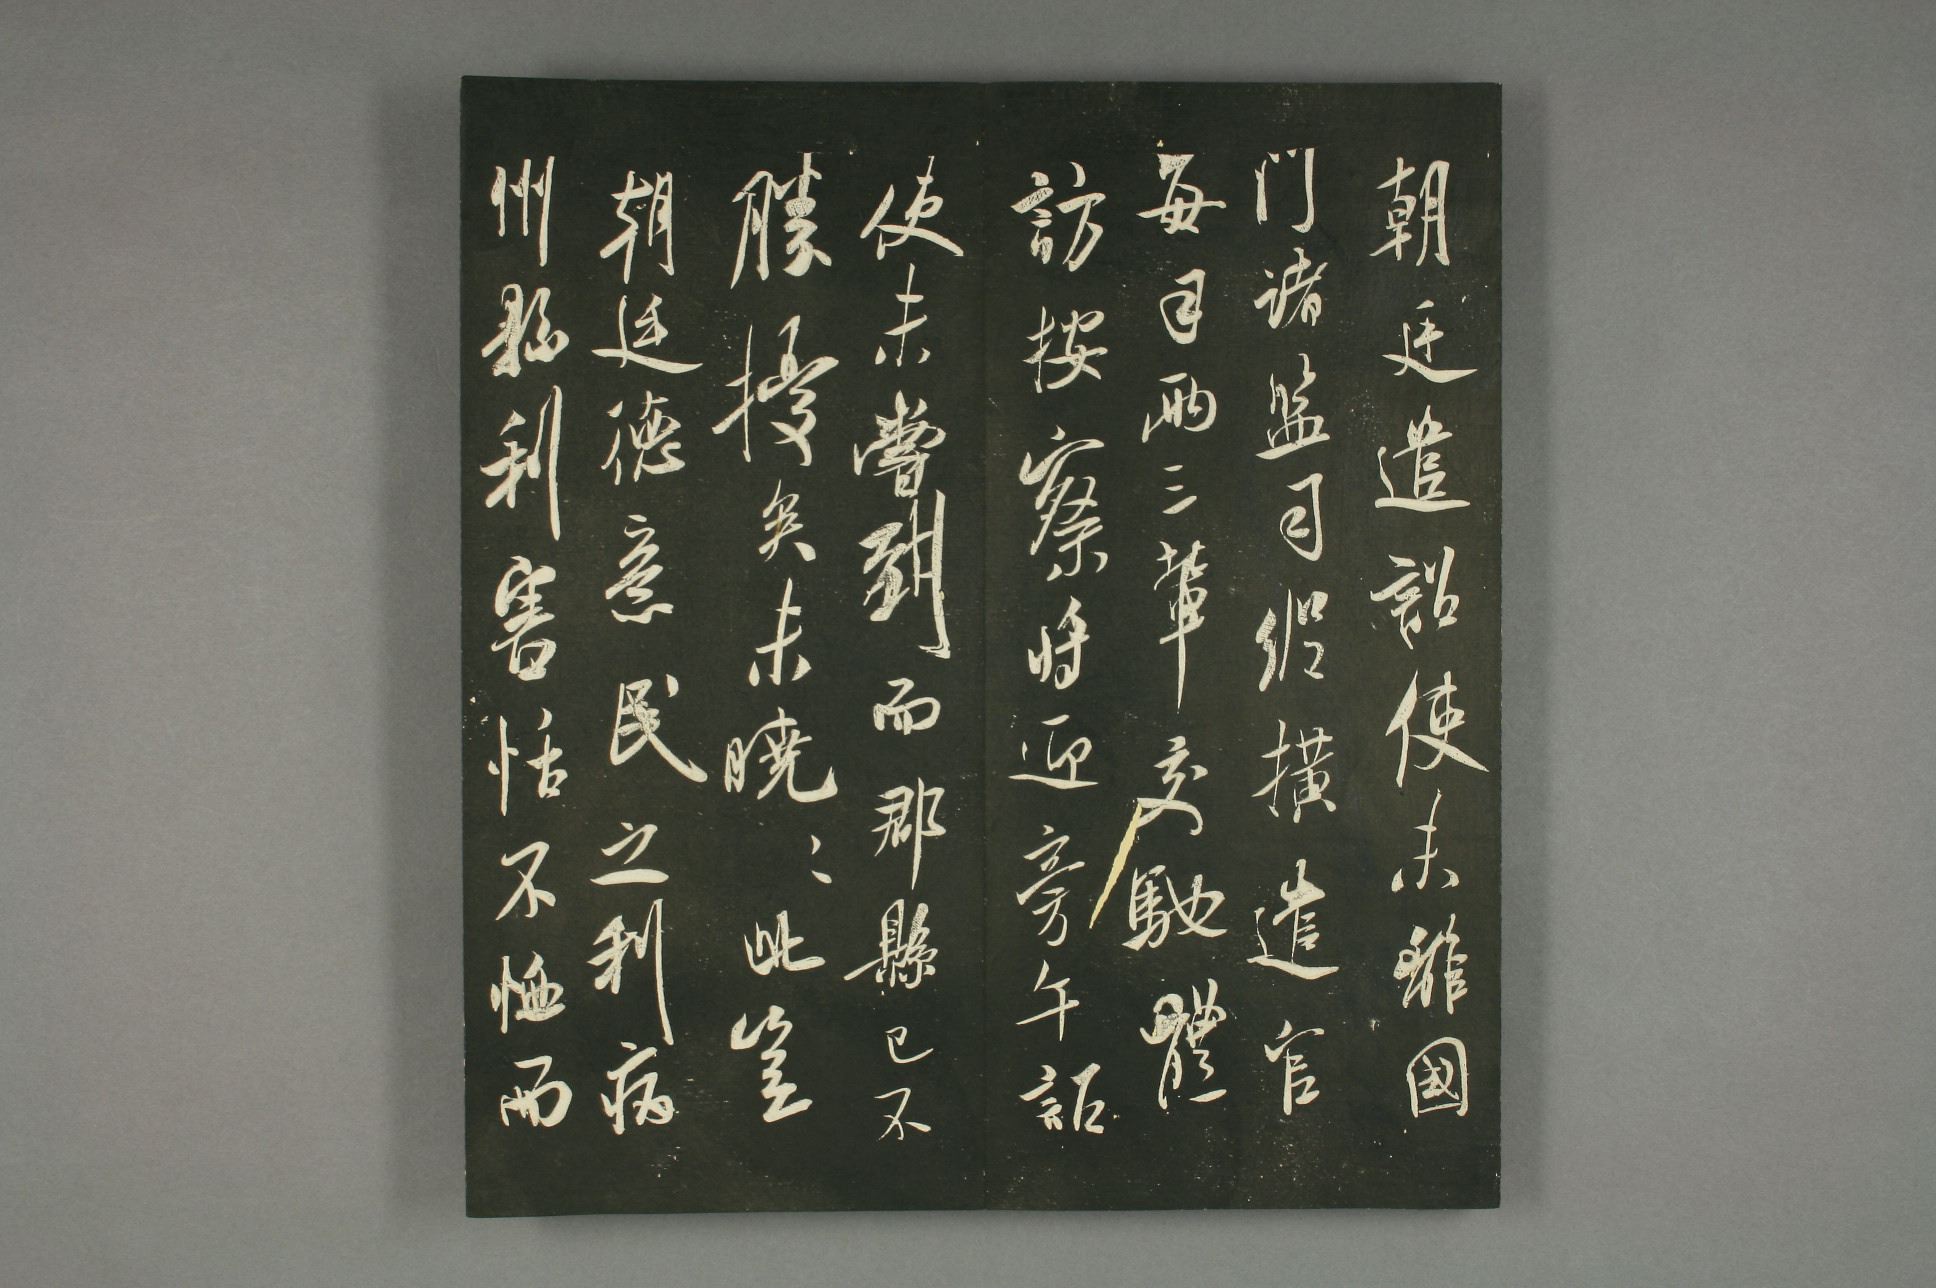 朝廷遣詔使未離國
門諸監司縱橫遣官
每司兩三輩交馳體
訪按察將迎旁午詎
使未嘗到而郡縣已不
勝擾矣未曉〻此豈
朝廷德意民之利病
州縣利害恬不恤而